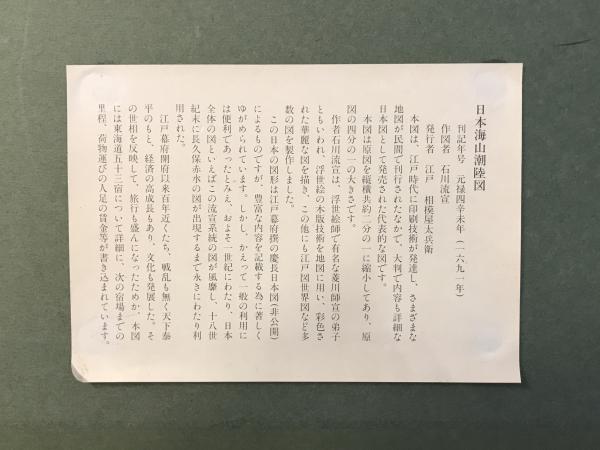 日本海山潮陸図
刊記年号 元禄四辛未年(一六九一年)
作図者 石川流宣
発行者 江戸 相模屋太兵衛
本図は、江戸時代に印刷技術が発達し、さまざまな
地図が民間で刊行されたなかで、大判で内容も詳細な
日本図として発売された代表的な図です。
本図は原図を縦横共約二分の一に縮小してあり、原
図の四分の一の大きさです。
作者石川流宣は、浮世絵師で有名な菱川師宣の弟子
ともいわれ、浮世絵の木版技術を地図に用い、彩色さ
れた華麗な図を描き、この他にも江戸図世界図など多
数の図を製作しました。
この日本の図形は江戸幕府撰の慶長日本図(非公開)
によるものですが、豊富な内容を記載する為に著しく
ゆがめられています。しかし、かえって一般の利用に
は便利であったとみえ、およそ一世紀にわたり、日本
全体の図といえばこの流宣系統の図が風靡し、十八世
紀末に長久保赤水の図が出現するまで永きにわたり利
用された。
江戸幕府開府以来百年近くたち、戦乱も無く天下泰
平のもと、経済の高成長もあり、文化も発展した。そ
の世相を反映して、旅行も盛んになったためか、本図
には東海道五十三宿について詳細に、次の宿場までの
里程、荷物運びの人足の賃金等が書き込まれています。